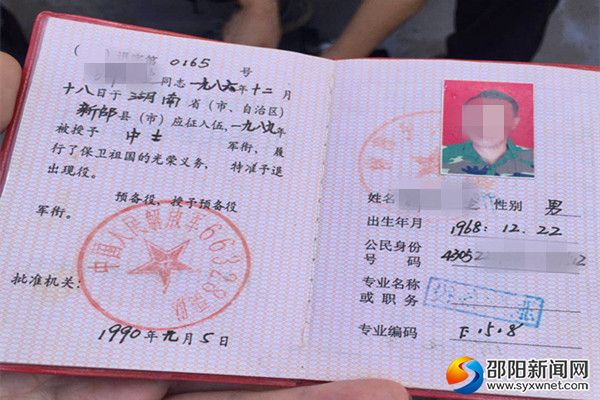 ( ) 退字第 0165 号
同志一九八六年十二月
十八日于湖南省(市、自治区)
新邵县(市)应征入伍,一九八九年
被授予 中士 军衔,履
行了保卫祖国的光荣义务,特准予退
出现役。
预备役,授予预备役
军衔。
批准机关:
中国人民解放军66328部队
1990年元月5日
姓名 性别 男
出生年月 1968.12.22
公民身份
号码 43052 2
专业名称
或职务
专业编码 F.15.8
邵阳新闻网
www.syxwnet.com